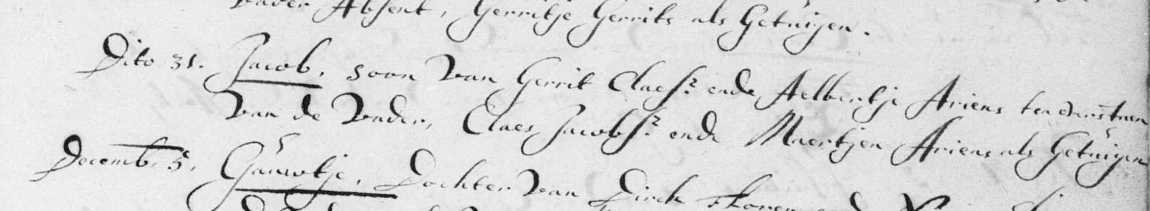 vader Absent, Gerritje Gerrits als Getuijgen.
Dito 31. Jacob, soon van Gerrit Claesz ende Aelbertje Ariens ten
van de Vader, Claes Jacobsz ende Maertjen Ariens als Getuijgen
Decemb. 5. Gauwtje, Dochter van Dirck